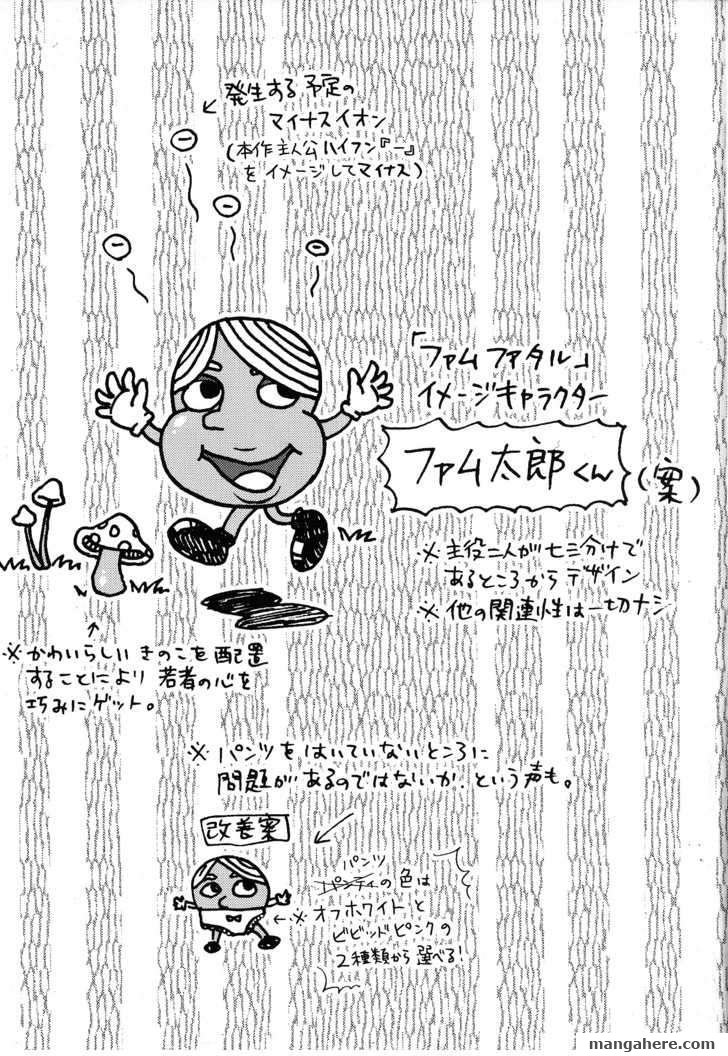 発生する予定の
マイナスイオン
(本作主人公ハイフン『-』
をイメージしてマイナス)
「ファム ファタル」
イメージキャラクター
ファム太郎くん
(案)
※主役二人が七三分けで
あるところからデザイン
※他の関連性は一切ナシ
※かわいらしいきのこを配置
することにより若者の心を
巧みにゲット。
※パンツをはいていないところに
問題があるのではないか、という声も。
改善案
パンツ
パンティの色は
※オフホワイトと
ビビッドピンクの
2種類から選べる!
mangahere.com